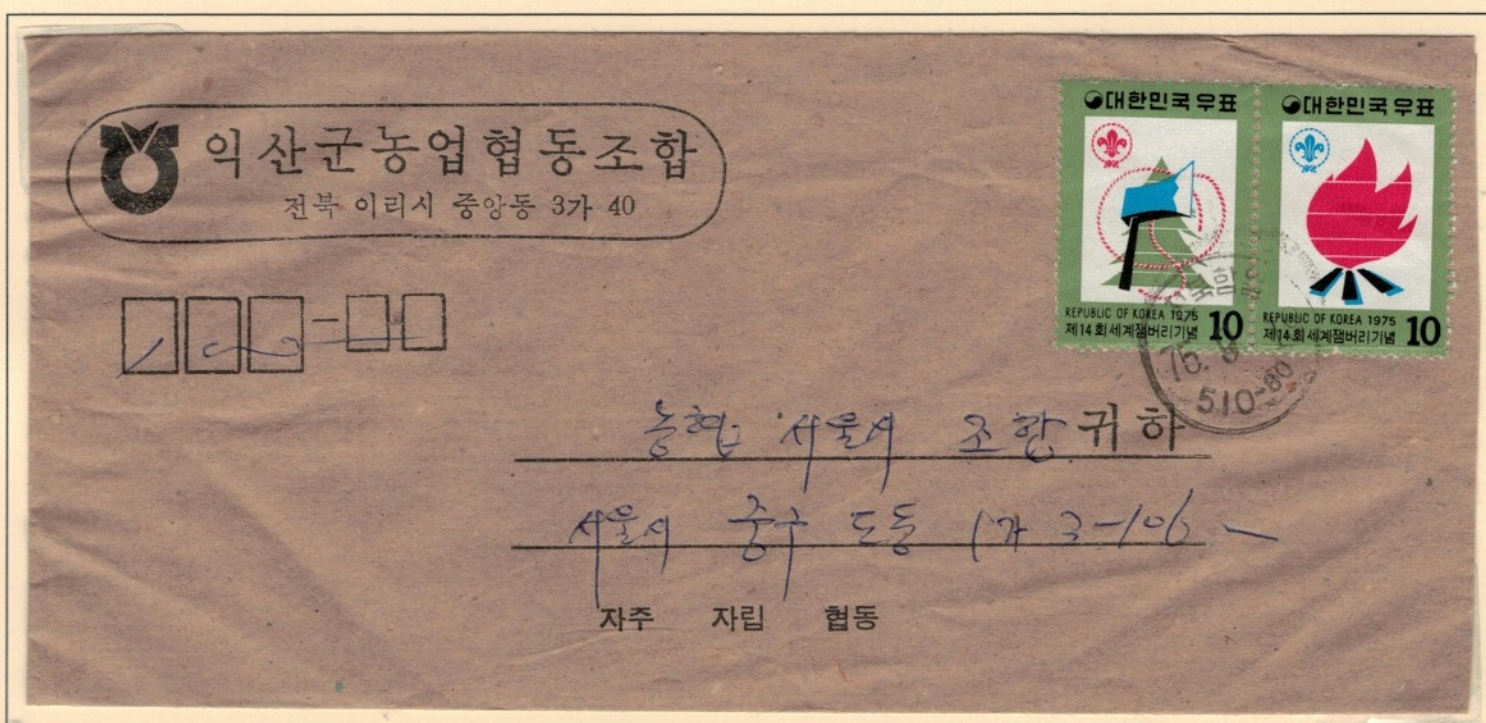 익산군농업협동조합
전북 이리시 중앙동 3가 40
대한민국우표
REPUBLIC OF KOREA 1975
제14회세계잼버리기념 10
대한민국우표
REPUBLIC OF KOREA 1975
제14회세계잼버리기념 10
75. 8
510-80
농협 서울시 조합 귀하
서울시 중구 도동 1가 3-106
자주 자립 협동